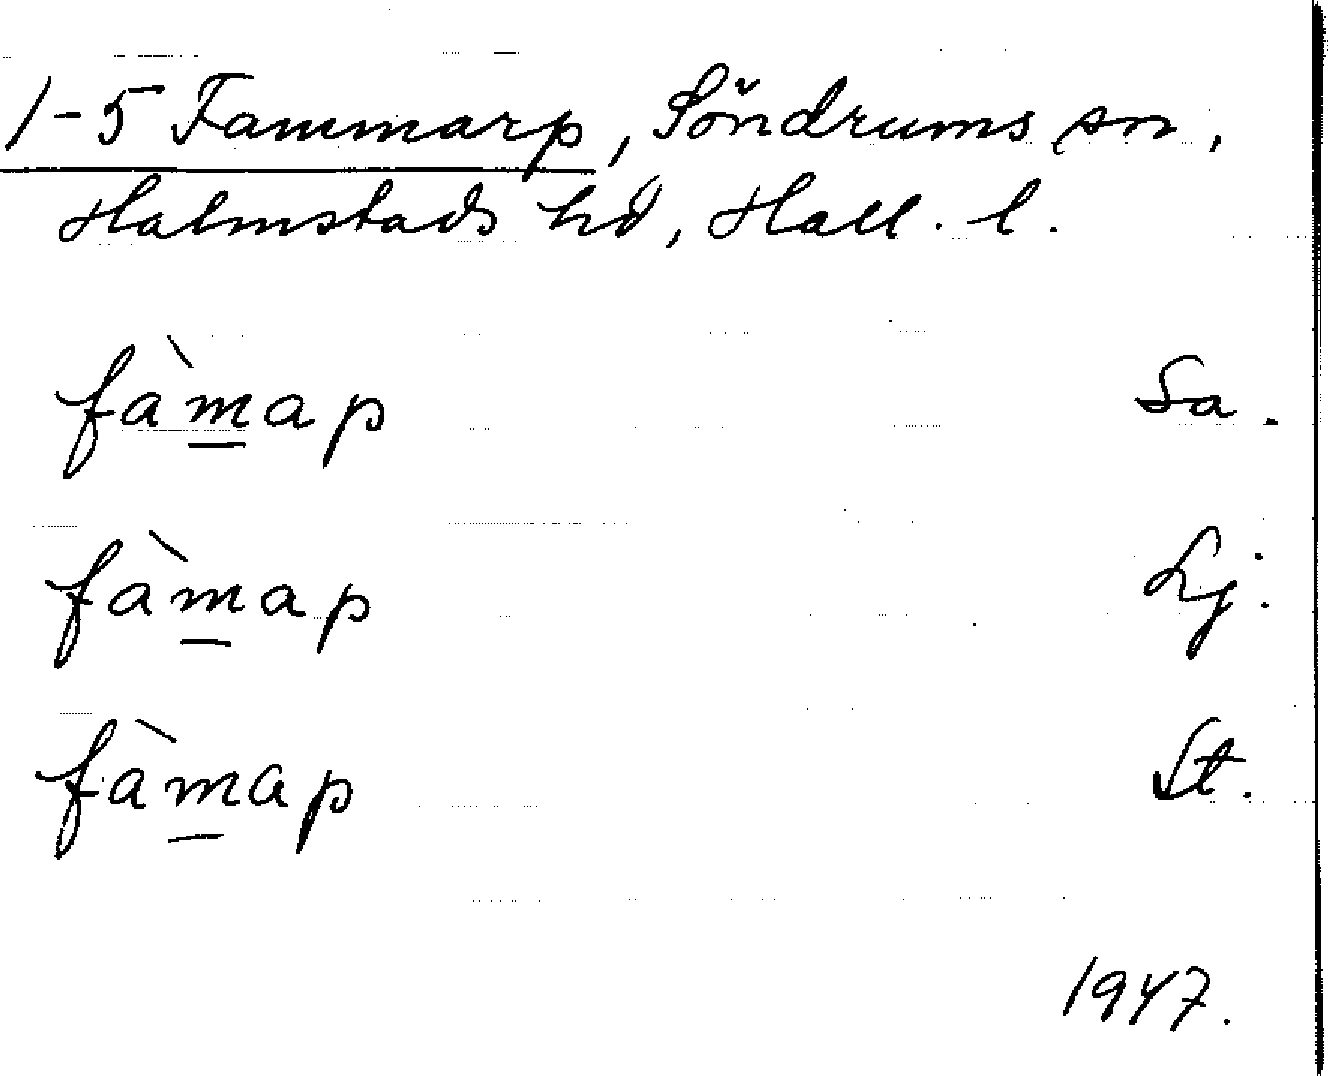 1-5 Fammarp, Söndrums sn,
Halmstads hd, Hall. l.
fàmap Sa.
fàmap Lj.
fàmap St.
1947.